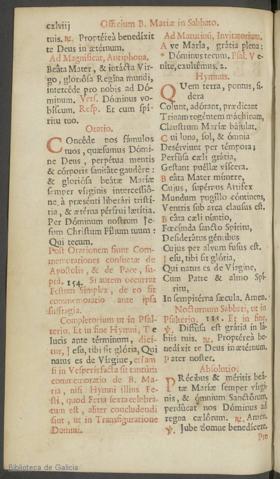 cxlviij
Officium B. Mariæ in Sabbato.
tuis. ℟. Proptéreà benedíxit
te Deus in ætérnum.
Ad Magnificat, Antiphona.
Beáta Mater, & intácta Vir-
go, gloriósa Regína mundi,
intercéde pro nobis ad Dó-
minum. Vers. Dóminus vo-
bíscum. Resp. Et cum spí-
ritu tuo.
Oratio.
Concéde nos fámulos
tuos, quǽsumus Dómi-
ne Deus, perpétua mentis
& córporis sanitáte gaudére:
& gloriósa beátæ Maríæ
semper vírginis intercessió-
ne, à præsénti liberári tristí-
tia, & ætérna pérfrui lætítia.
Per Dóminum nostrum Je-
sum Christum Fílium tuum:
Qui tecum.
Post Orationem fiunt Com-
memorationes consuetæ de
Apostolis, & de Pace, su-
pra, 154. Si autem occurrat
Festum simplex, de eo fit
commemoratio ante ipsa
suffragia.
Completorium ut in Psal-
terio. Et in fine Hymni, Te
lucis ante términum, dici-
tur, Jesu, tibi sit glória, Qui
natus es de Vírgine, etiam
si in Vesperis facta sit tantùm
commemoratio de B. Ma-
ria, nisi Hymni illius Fe-
sti, quod Feria sexta celebra-
tum est, aliter concludendi
sint, ut in Transfiguratione
Domini.
Ad Matutinum, Invitatorium.
Ave María, grátia plena:
* Dóminus tecum. Psal. Ve-
níte, exultémus. 2.
Hymnus.
Quem terra, pontus, sí-
dera
Colunt, adórant, prædicant
Trinam regéntem máchinam,
Claustrum Maríæ bájulat.
Cui luna, sol, & ómnia
Desérviunt per témpora;
Perfúsa cæli grátia,
Gestant puéllæ víscera.
Beáta Mater múnere,
Cujus, supérnus Artifex
Mundum pugíllo cóntinens,
Ventris sub arca clausus est.
Beáta cæli núntio,
Fœcúnda sancto Spíritu,
Desiderátus géntibus
Cujus per alvum fusus est.
Jesu, tibi sit glória,
Qui natus es de Vírgine,
Cum Patre & almo Spí-
ritu,
In sempitérna sǽcula, Amen.
Nocturnum Sabbati, ex
Psalterio, 181. Et in fine,
℣. Diffúsa est grátia in lá-
biis tuis. ℟. Proptéreà be-
nedíxit te Deus in ætérnum.
Pater noster.
Absolutio.
Précibus & méritis beá-
tæ Maríæ semper vírgi-
nis, & ómnium Sanctórum,
perdúcat nos Dóminus ad
regna cælórum. ℟. Amen.
℣. Jube domne benedícere.
Biblioteca de Galicia